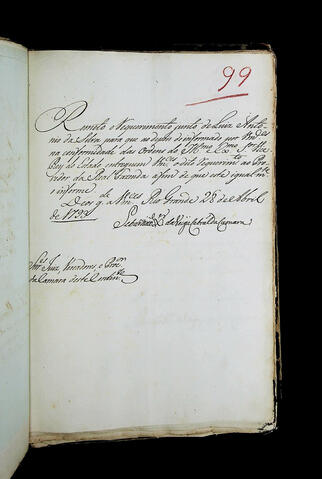 99
Remeto o Requerimento junto de Luiz Anto-
nio da Silva para que ao depois de informado por Vmces
na conformidade das Ordens do Illmo e Exmo Snr Vice
Rey do Estado entreguem Vmces o dito Requerimto ao Pro-
vedor da Real Fazenda afim de que este igualmte
informe
Deos gde a Vmces Rio Grande 28 de Abril
de 1792
Sebastião Xer da Veiga Cabral da Camara
Snres Juiz, Vereadores, e Procor
da Camara deste Continte